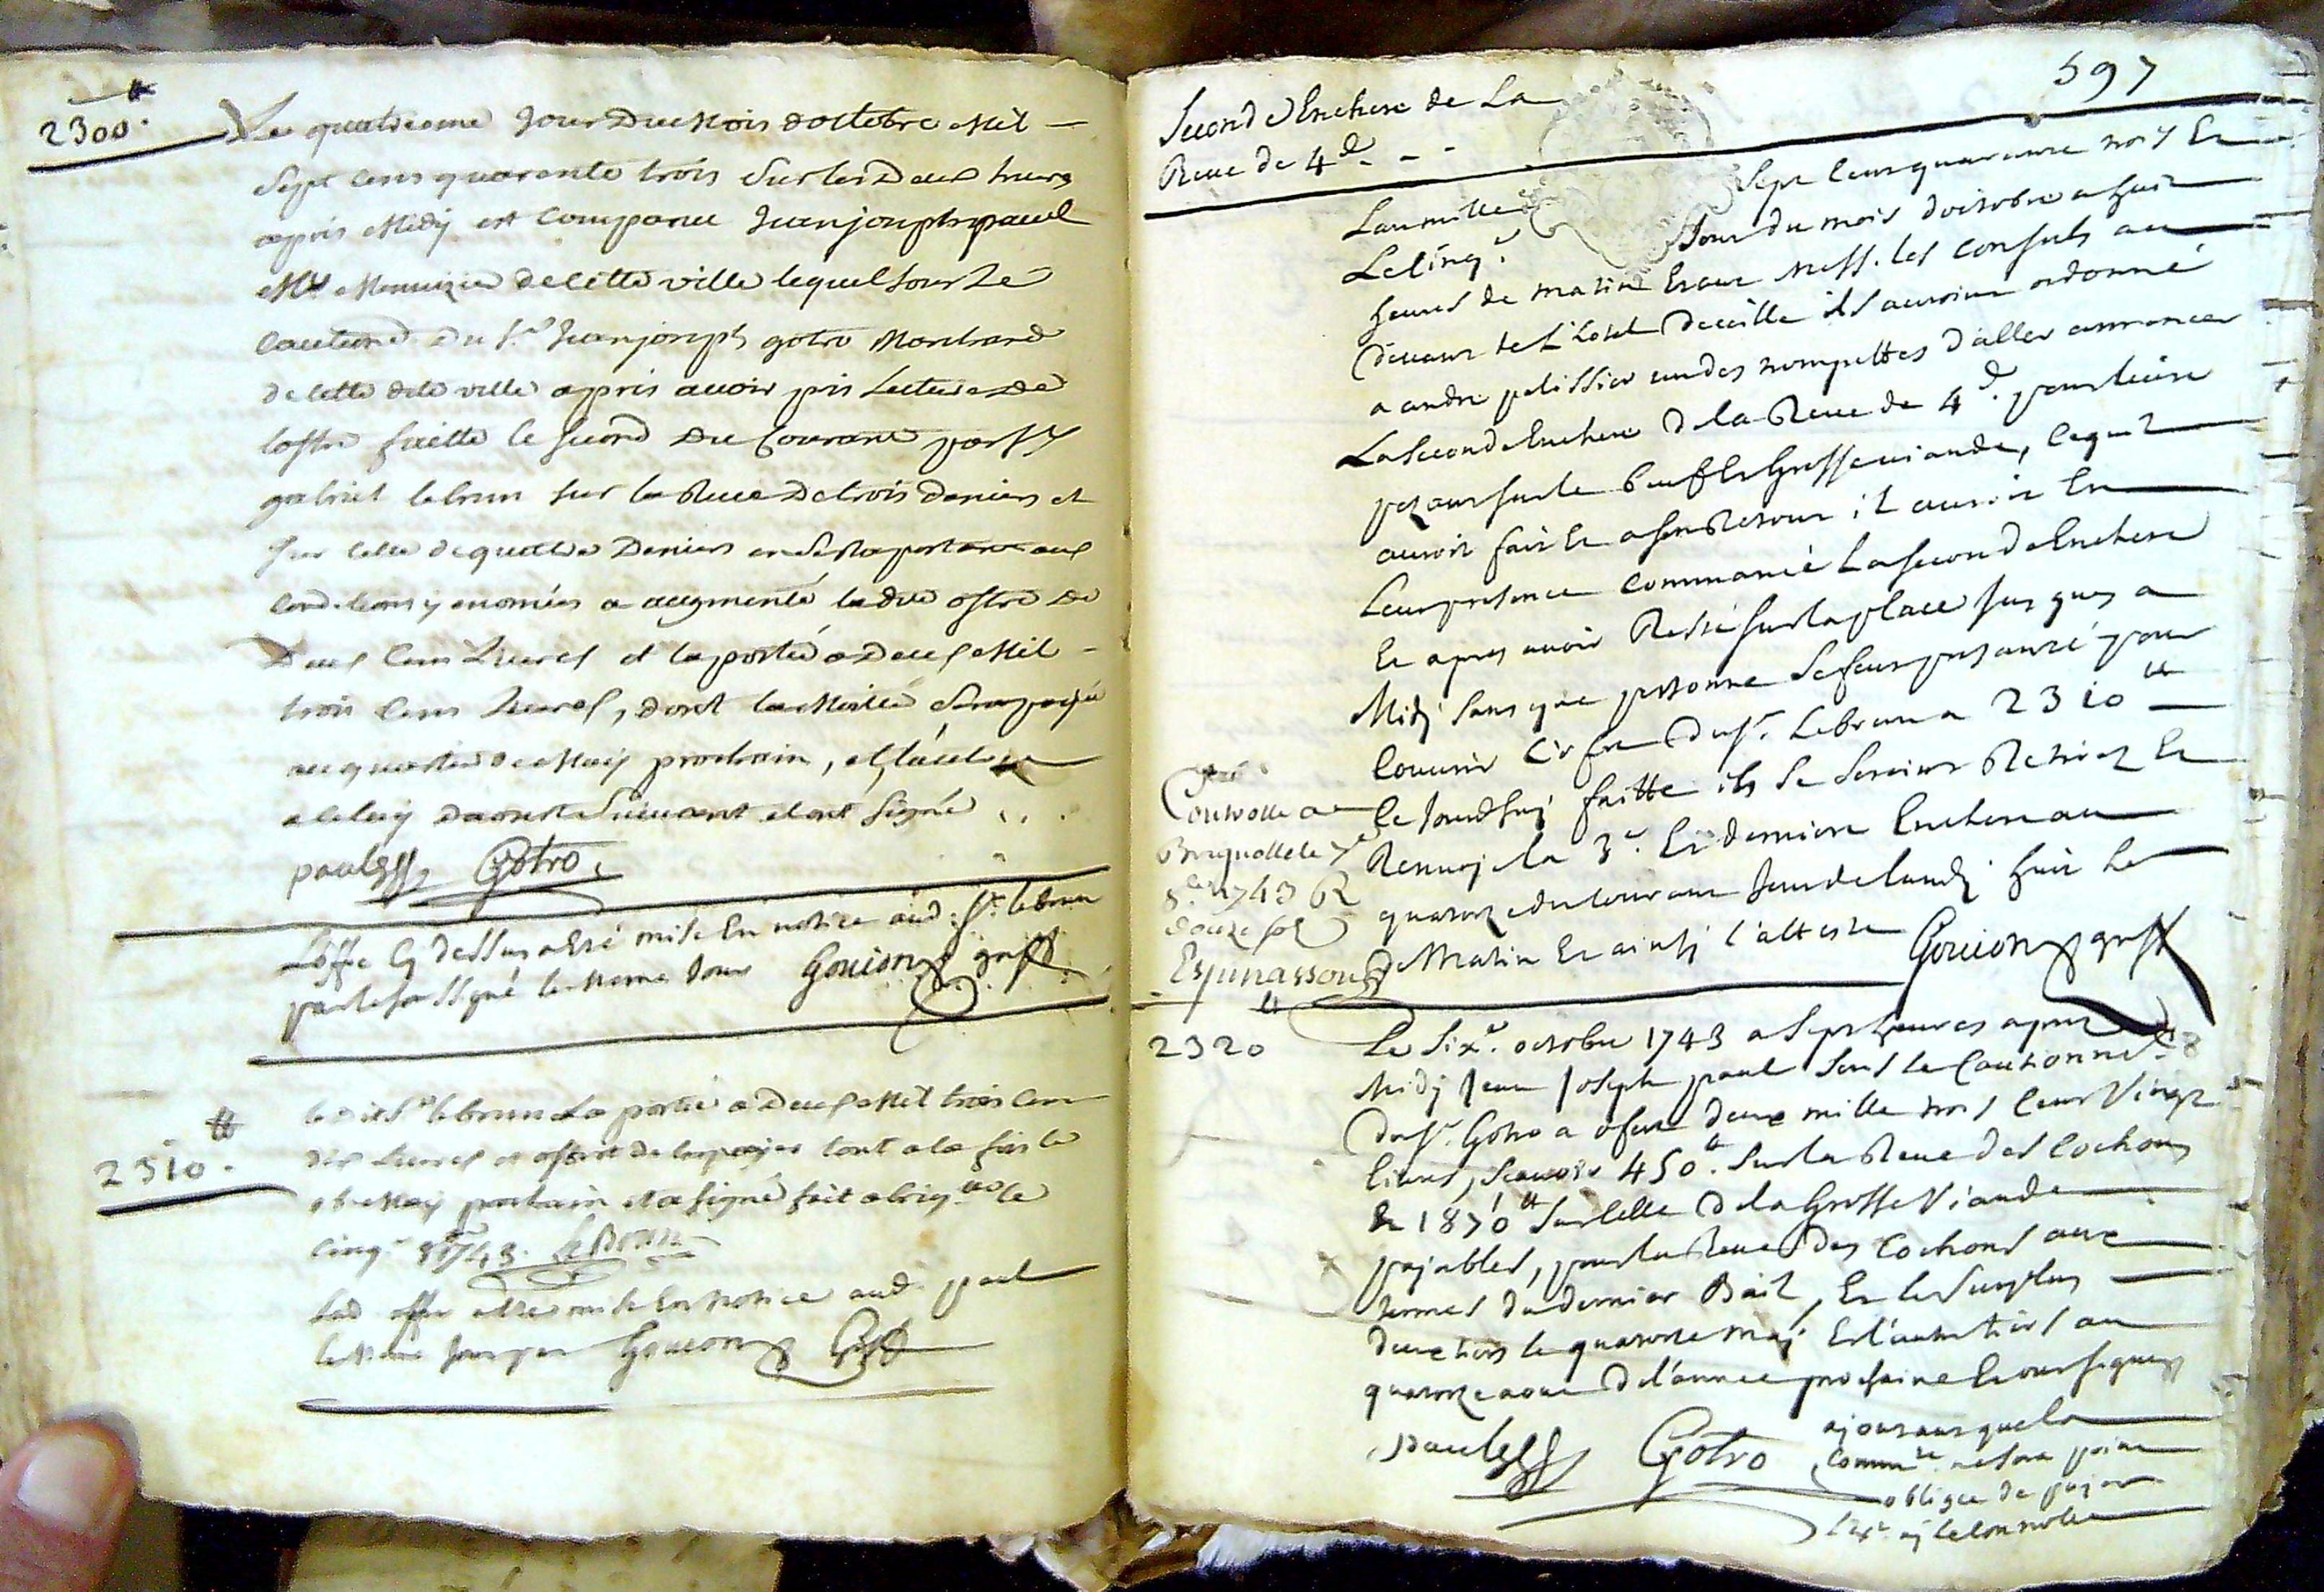 2300.
Le quatrieme Jour Du Mois doctobre Mil
Sept cens quarante trois Sur les Deux heures
apris Midy est Comparu Jean joseph paul
Me Menuizier de cette ville lequel Sous le
Cautiond Du Sr Jean joseph gotro Marchand
de cette dite ville apris avoir pris Lecture De
loffre faitte le second Du Courant par Sr
gabriel lebrun sur la Reve De trois deniers et
sur celle de quattre Deniers en Se Raportant aux
Conditions y enoncées a augmenté ladite offre De
Deux Cens Livres et la portée a Deux Mil
trois Cens Livres, dont la Moitié Sera payée
au quatre de May prochain, et l'autre
a celuy daoust Suivant et ont Signé
paul Gotro
Loffre cy dessus a Esté mise En notice aud. Sr. lebrun
par le soussigné le meme Jour Gouion greff
2310.
ledit Sr lebrun La portée a Deux Mil trois Cens
dix Livres et offert de les payer tout a la fois le
de May prochain et a signé fait a brig.les le
cinq. 8bre 1743. Le Brun
Lad offre a Esté mise En Notice aud. paul
le meme Jour par Gouion Greff
597
Second Enchere de La
Reve de 4d.
Lan mille Sept Cens quarante trois Et
Le cinq.e Jour du mois doctobre a huit
heures de matin Etant Mess. les Consuls au
devant de L'hotel De ville ils auroint ordonné
a andre pelissier un des trompettes d'aller annoncer
La Seconde Enchere de la Reve de 4d. pour livre
pezant sur le beuf Et Grosse viande, lequel
auroit fait Et a son Retour il auroit En
Leur presence Commancé La seconde Enchere
Et apres avoir Resté sur la place jusques a
Midy sans que personne Se feut presanté pour
Couvrir L'ofre du Sr. Lebrun a 2310 tt
Ce jourd'huy faitte ils Se Seroint Retirez Et
Renvoyé la 3e. Et derniere Enchere au
quatorze du courant Jour de lundy huit he
de Matin Et ainsi l'atteste Gouion greff
Controllé a
Brignolle le 7e
8bre 1743 R
douze sols
Espinassoux
2320 tt
Le Six.e octobre 1743 a Sept heures apres
Midy Jean Joseph paul Sous le Cautionnet.
du Sr. Gotro a ofert deux mille trois Cens Vingt
livres, Scavoir 450 tt. Sur la Reve des Cochons
Et 1870 tt Sur celle de la Grosse Viande
payables, pour la Reve des Cochons aux
termes du dernier Bail, Et le Surplus
deux tiers le quatorze may Et l'autre tiers au
quatorze aout de l'année prochaine Et ont signez
paul Gotro
ajoutant que la
Comm.té ne sera point
obligée de payer